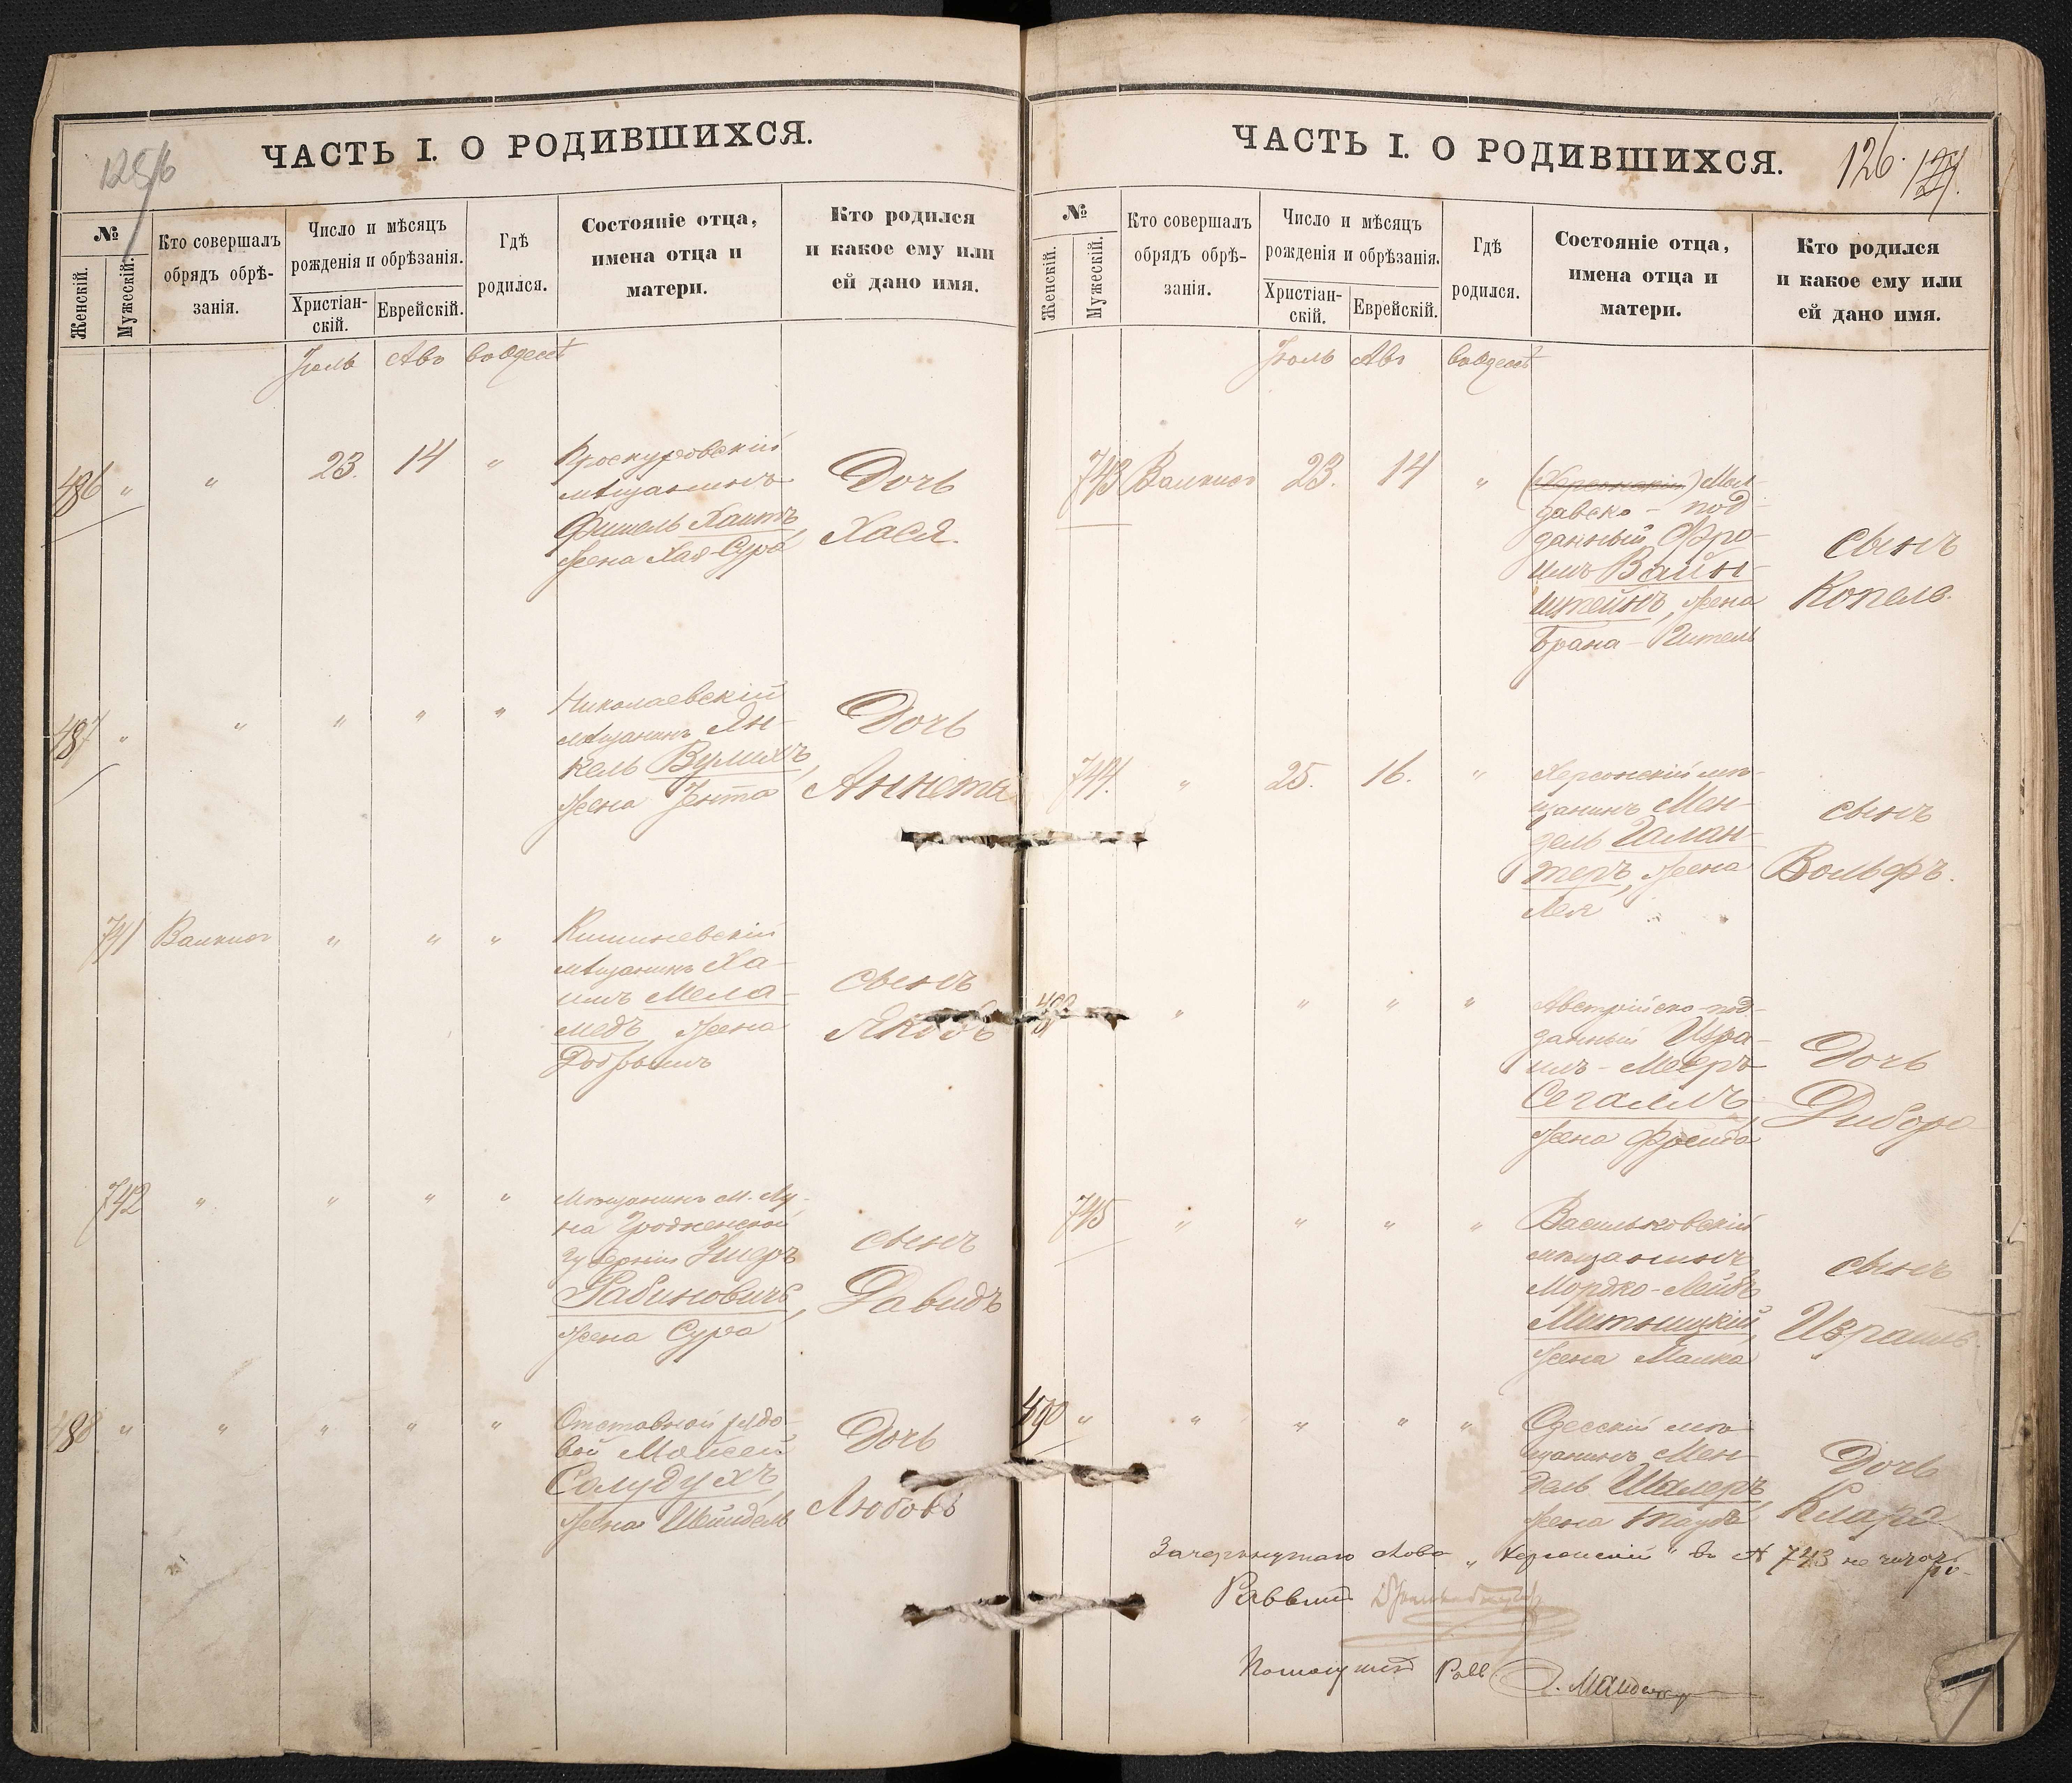 ЧАСТЬ I. О РОДИВШИХСЯ.
№
Женскій.
Мужескій.
Кто совершалъ
обрядъ обрѣ-
занія.
Число и мѣсяцъ
рожденія и обрѣзанія.
Христіан-
скій.
Еврейскій.
Гдѣ
родился.
Состояніе отца,
имена отца и
матери.
Кто родился
и какое ему или
ей дано имя.
Іюль Авъ въ Одессѣ
486 " " 23. 14 "
Проскуровскій
мѣщанинъ
Фишель Хаитъ,
жена Хая-Сура
Дочь
Хася.
487 " " " " "
Николаевскій
мѣщанинъ Ян-
кель Вулихъ,
жена Іента
Дочь
Аннета
741 " " "
Кишиневскій
мѣщанинъ Ха-
имъ Мела-
медъ, жена
Добрышъ
сынъ
Яковъ
742 " " " "
Мѣщанинъ м. Лу-
на Гродненской
губерніи Ушеръ
Рабиновичъ,
жена Сура
сынъ
Давидъ
488 " " " " "
Отставной рядо-
вой Мойсей
Солудухъ,
жена Шейндель
Дочь
Любовь
ЧАСТЬ I. О РОДИВШИХСЯ.
126.
№
Женскій.
Мужескій.
Кто совершалъ
обрядъ обрѣ-
занія.
Число и мѣсяцъ
рожденія и обрѣзанія.
Христіан-
скій.
Еврейскій.
Гдѣ
родился.
Состояніе отца,
имена отца и
матери.
Кто родился
и какое ему или
ей дано имя.
Іюль Авъ въ Одессѣ
743 23. 14 "
(Херсонскій) Мол-
давско-под-
данный Фро-
имъ Вайн-
штейнъ, жена
Брана-Гитель
сынъ
Копель.
744. " 25. 16. "
Херсонскій мѣ-
щанинъ Мен-
дель Галан-
теръ, жена
Лея
сынъ
Вольфъ.
" " " "
Австрійско-под-
данный Изра-
иль-Мееръ
Сегаллъ,
жена Фрейда
Дочь
Двора
745 " " " "
Васильковскій
мѣщанинъ
Мордко-Лейбъ
Митницкій,
жена Малка
сынъ
Израиль.
490 " " " " "
Одесскій мѣ-
щанинъ Мен-
дель Шалеръ,
жена Тауба
Дочь
Клара
Зачеркнутаго слова "Херсонскій" въ № 743 не читать.
Раввинъ
Помощникъ Равв